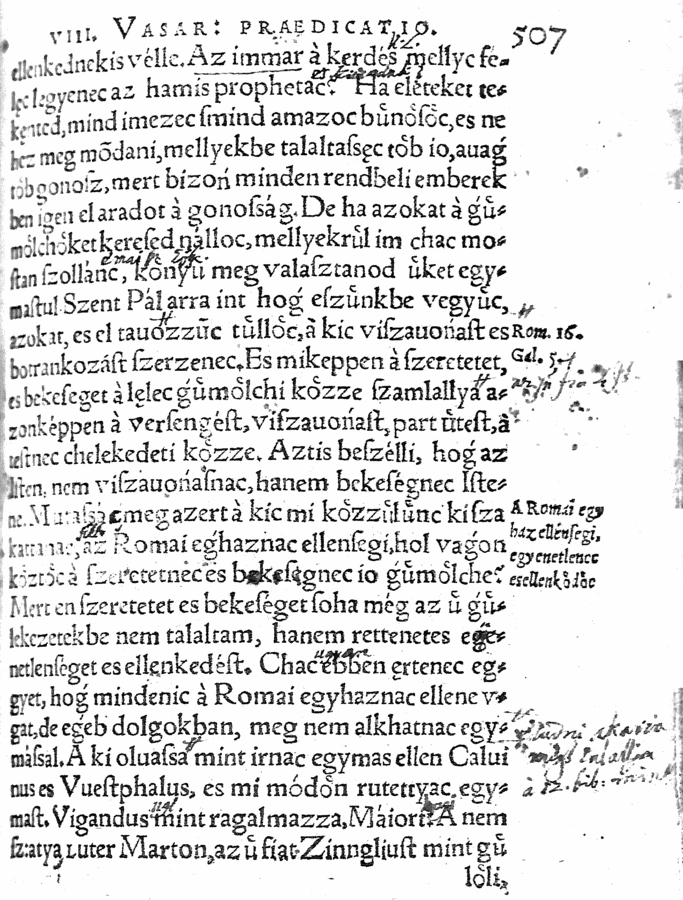 VIII. VASAR: PRAEDICATIO.
507
ellenkednekis vélle. Az immar à kerdés mellyc fé⸗
lęc legyenec az hamis prophetác? Ha eléteket te⸗
kented, mind imezec ſmind amazoc bűnóſóc, es ne
hez meg mōdani, mellyekbe talaltaſsęc tób io, auag
tób gonoſz, mert bizoń minden rendbeli emberek
ben igen el aradot à gonoſság. De ha azokat à gů⸗
mólchóket kereſed nálloc, mellyekrůl im chac mo⸗
ſtan ſzollánc, kónyů meg valaſztanod ůket egy⸗
maſtul. Szent Pál arra int hoǵ eſzůnkbe vegyůc,
azokat, es el tauózzūc tůllóc, à kic viſzauońaſt es
botrankozáſt ſzerzenec. Es mikeppen à ſzeretetet,
es bekeſeget à lęlec gůmólchi kózze ſzamlallya a⸗
zonképpen à verſengéſt, viſzauońaſt, part ůteſt, à
teſtnec chelekedeti kózze. Aztis beſzélli, hoǵ az
Iſten, nem viſzauońaſnac, hanem bekeſégnec Iſte⸗
ne. Mutaſsác meg azert à kic mi kózzůlůnc ki ſza
kattanac, az Romai eǵhaznac ellenſegi, hol vaǵon
kóztóc à ſzeretetnec es bekeſégnec io gůmólche?
Mert en ſzeretetet es bekeſéget ſoha még az ů gů⸗
lekezetekbe nem talaltam, hanem rettenetes ege⸗
netlenſéget es ellenkedéſt. Chac ebben ęrtenec eg⸗
gyet, hoǵ mindenic à Romai egyhaznac ellene v⸗
gat, de eǵeb dolgokban, meg nem alkhatnac egy⸗
máſsal. A ki oluaſsa mint irnac egymas ellen Calui
nus es Vueſtphalus, es mi módon rutettyac egy⸗
maſt. Vigandus mint ragalmazza, Máiort? A nem
ſz: atya Luter Marton, az ů fiat Zinngliuſt mint gů
lóli,
Rom. 16.
Gal. 5.
A Romai egy
haz ellenſegi,
egyenetlenec
es ellenkódóc